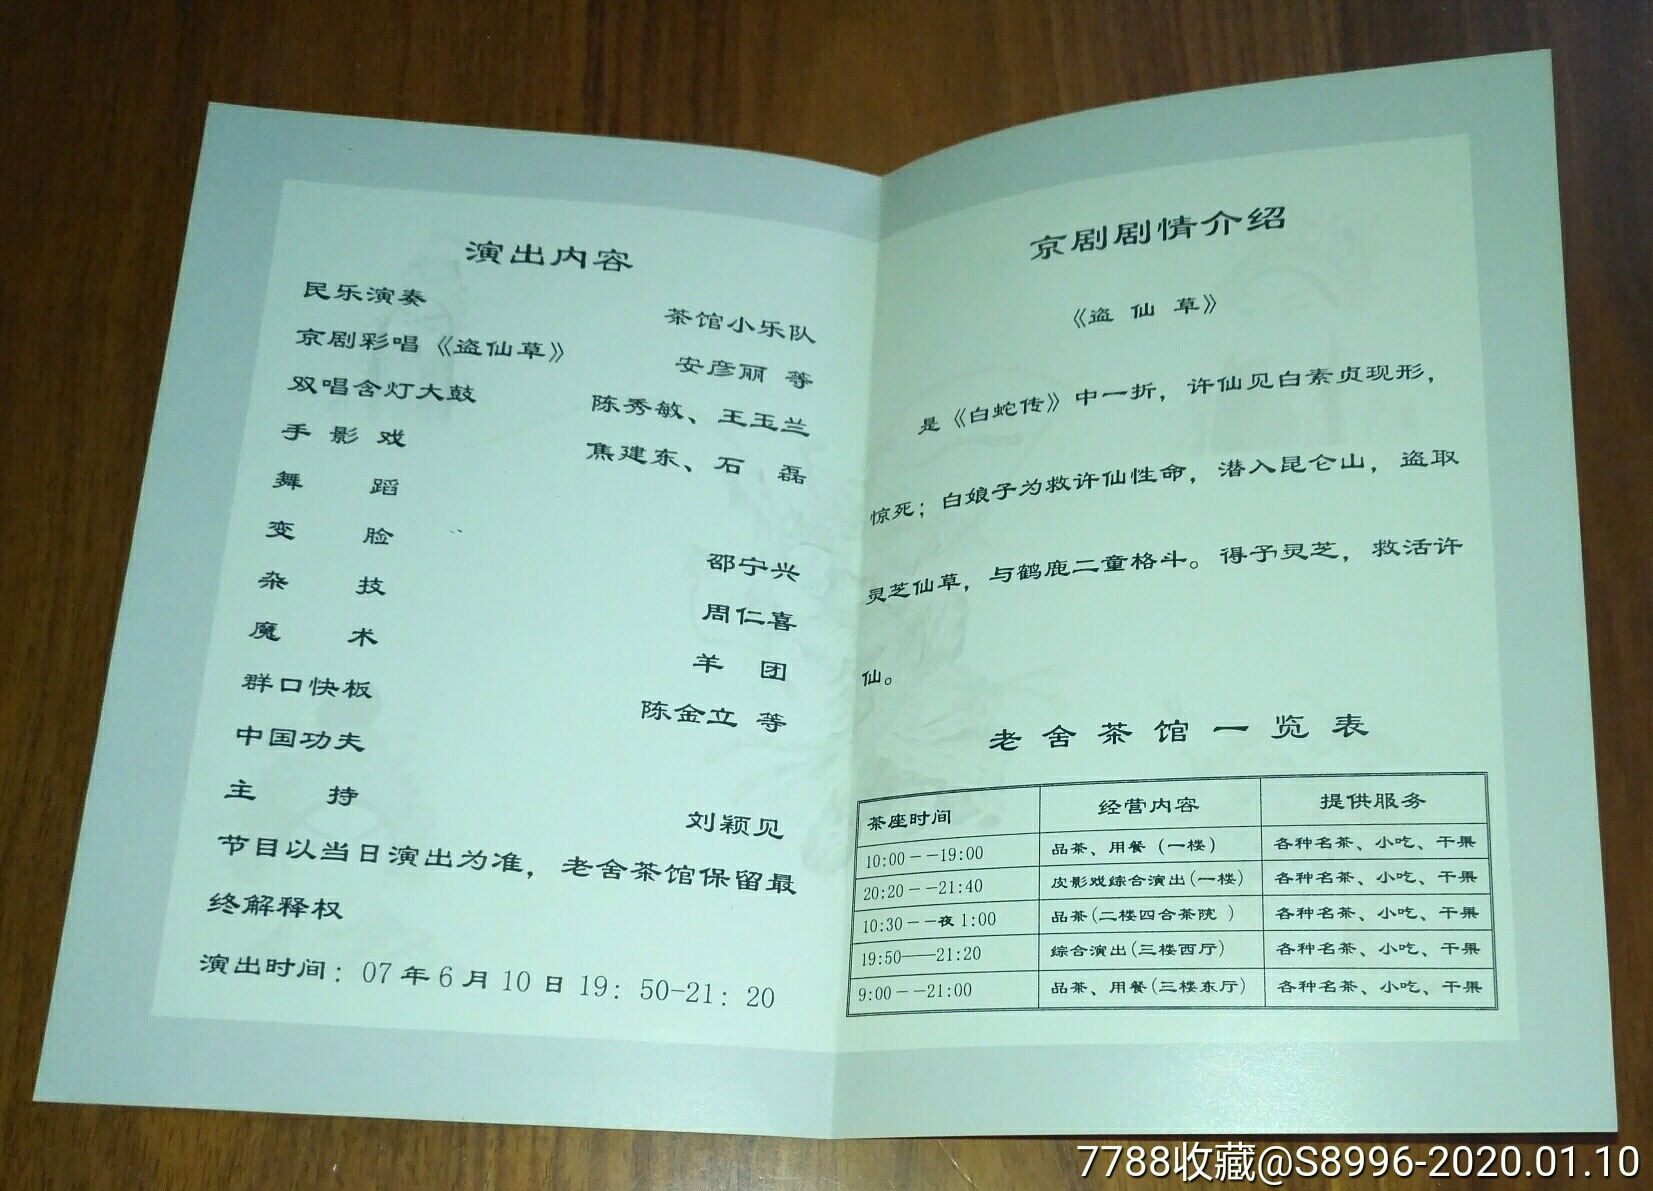 演出内容
民乐演奏 茶馆小乐队
京剧彩唱《盗仙草》 安彦丽 等
双唱含灯大鼓 陈秀敏、王玉兰
手 影 戏 焦建东、石 磊
舞 蹈
变 脸 邵宁兴
杂 技 周仁喜
魔 术 羊 团
群口快板 陈金立 等
中国功夫
主 持 刘颖见
节目以当日演出为准，老舍茶馆保留最
终解释权
演出时间：07年6月10日19：50-21：20
京剧剧情介绍
《盗 仙 草》
是《白蛇传》中一折，许仙见白素贞现形，
惊死；白娘子为救许仙性命，潜入昆仑山，盗取
灵芝仙草，与鹤鹿二童格斗。得予灵芝，救活许
仙。
老 舍 茶 馆 一 览 表
茶座时间 经营内容 提供服务
10:00--19:00 品茶、用餐（一楼） 各种名茶、小吃、干果
20:20--21:40 皮影戏综合演出(一楼) 各种名茶、小吃、干果
10:30--夜1:00 品茶(二楼四合茶院 ) 各种名茶、小吃、干果
19:50——21:20 综合演出(三楼西厅) 各种名茶、小吃、干果
9:00--21:00 品茶、用餐(三楼东厅) 各种名茶、小吃、干果
7788收藏@S8996-2020.01.10